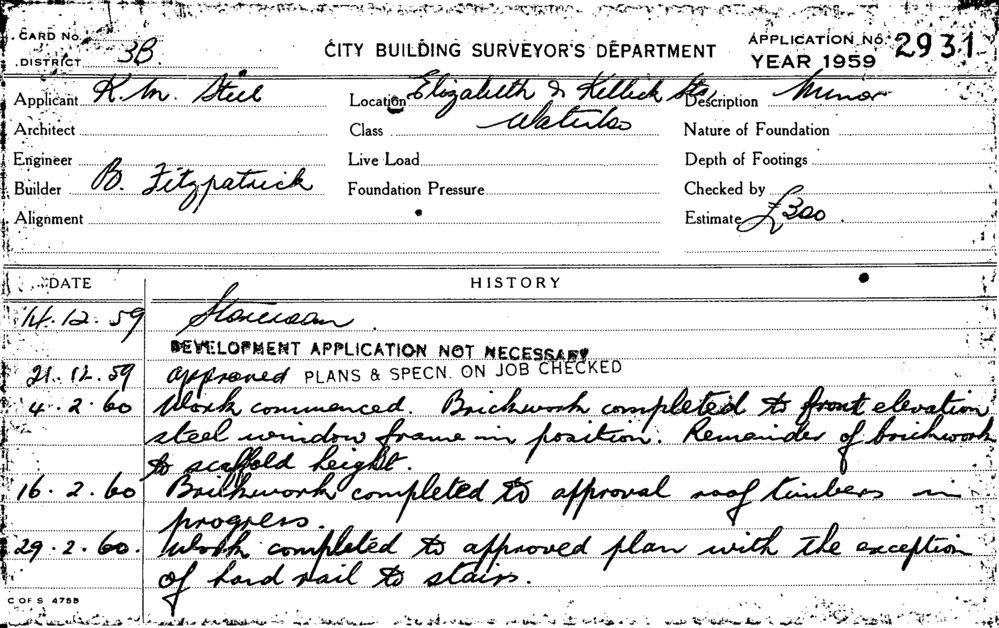 CARD No.
DISTRICT 3B
CITY BUILDING SURVEYOR'S DEPARTMENT
APPLICATION No. 2931
YEAR 1959
Applicant K. M. Steel
Location Elizabeth & Kellick Sts
Description Minor
Architect
Class Waterloo
Nature of Foundation
Engineer
Live Load
Depth of Footings
Builder B. Fitzpatrick
Foundation Pressure
Checked by
Alignment
Estimate £300
DATE HISTORY
14.12.59 Storeroom
DEVELOPMENT APPLICATION NOT NECESSARY
21.12.59 approved PLANS & SPECN. ON JOB CHECKED
4.2.60 Work commenced. Brickwork completed to front elevation
steel window frame in position. Remainder of brickwork
to scaffold height.
16.2.60 Brickwork completed to approval roof timbers in
progress.
29.2.60. Work completed to approved plan with the exception
of hand rail to stairs.
C OF S 4755